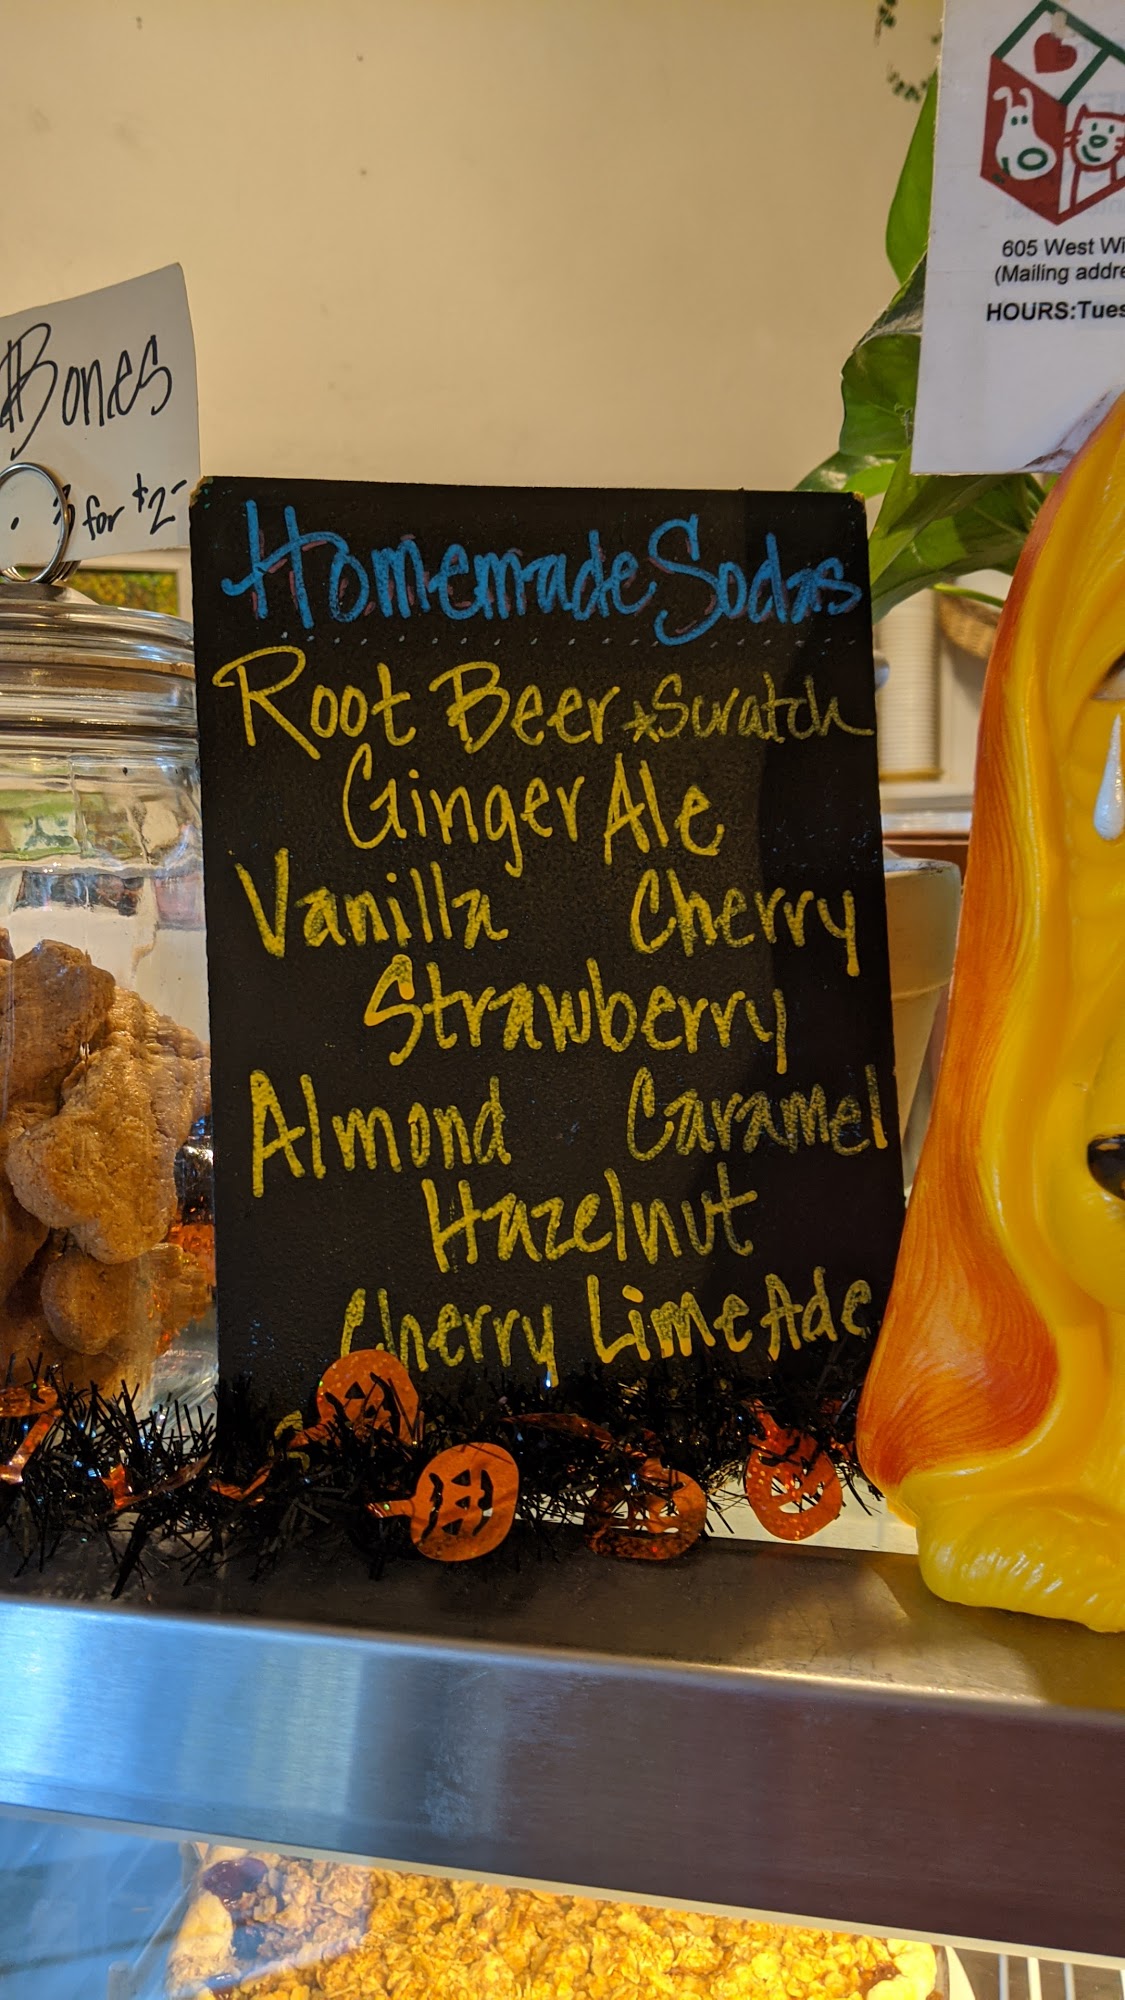 Bones
3 for $2-
Homemade Sodas
Root Beer ★Scratch
Ginger Ale
Vanilla Cherry
Strawberry
Almond Caramel
Hazelnut
Cherry LimeAde
605 West Wi
(Mailing addre
HOURS:Tues